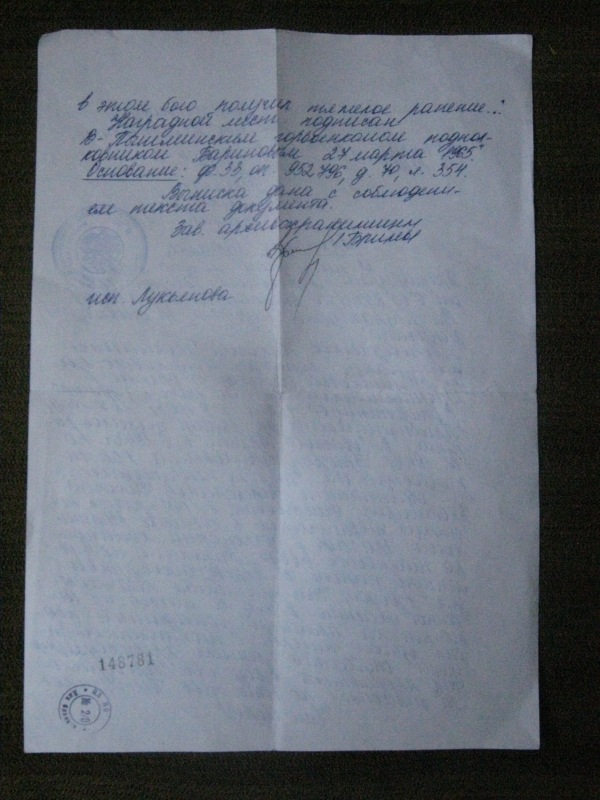 в этом бою получил тяжелое ранение..."
Наградной лист подписан
В-Пышминским горвоенкомом подпол-
ковником Бариновым 27 марта 1965г.
Основание: ф. 33, оп. 952796, д. 70, л. 354.
Выписка дана с соблюдени-
ем текста документа.
Зав. архивохранилищем
исп. Лукьянова
148781